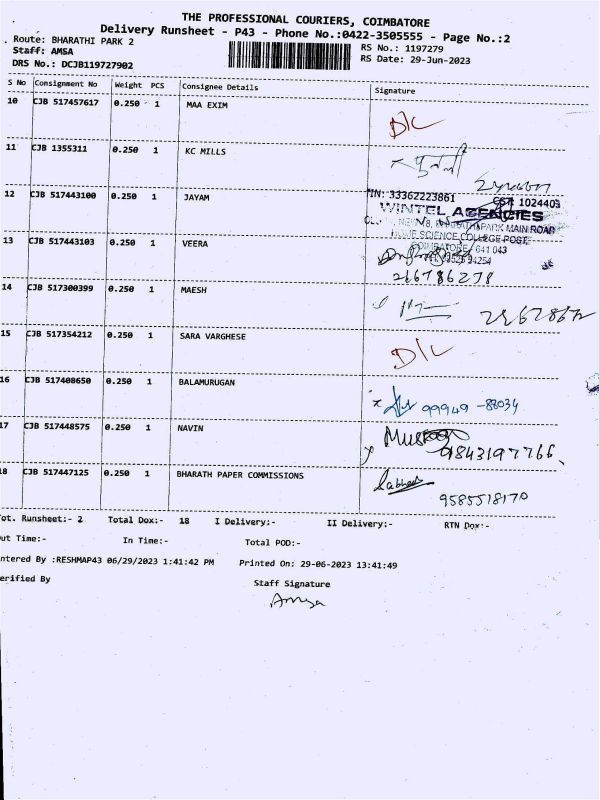 THE PROFESSIONAL COURIERS, COIMBATORE
Delivery Runsheet - P43 - Phone No.:0422-3505555 - Page No.:2
Route: BHARATHI PARK 2
RS No.: 1197279
Staff: AMSA
RS Date: 29-Jun-2023
DRS No.: DCJB119727902
S No Consignment No Weight PCS Consignee Details Signature
10 CJB 517457617 0.250 1 MAA EXIM
D/L
11 CJB 1355311 0.250 1 KC MILLS
12 CJB 517443100 0.250 1 JAYAM
TIN: 33362223861 CST: 1024403
WINTEL AGENCIES
PARK MAIN ROAD
HOME SCIENCE COLLEGE POST
COIMBATORE - 641 043
13 CJB 517443103 0.250 1 VEERA
14 CJB 517300399 0.250 1 MAESH
15 CJB 517354212 0.250 1 SARA VARGHESE
D/L
16 CJB 517408650 0.250 1 BALAMURUGAN
99949 -88034
17 CJB 517448575 0.250 1 NAVIN
9843197766
18 CJB 517447125 0.250 1 BHARATH PAPER COMMISSIONS
9585518170
ot. Runsheet:- 2 Total Dox:- 18 I Delivery:- II Delivery:- RTN Dox:-
ut Time:- In Time:- Total POD:-
ntered By :RESHMAP43 06/29/2023 1:41:42 PM Printed On: 29-06-2023 13:41:49
erified By Staff Signature
Amsa